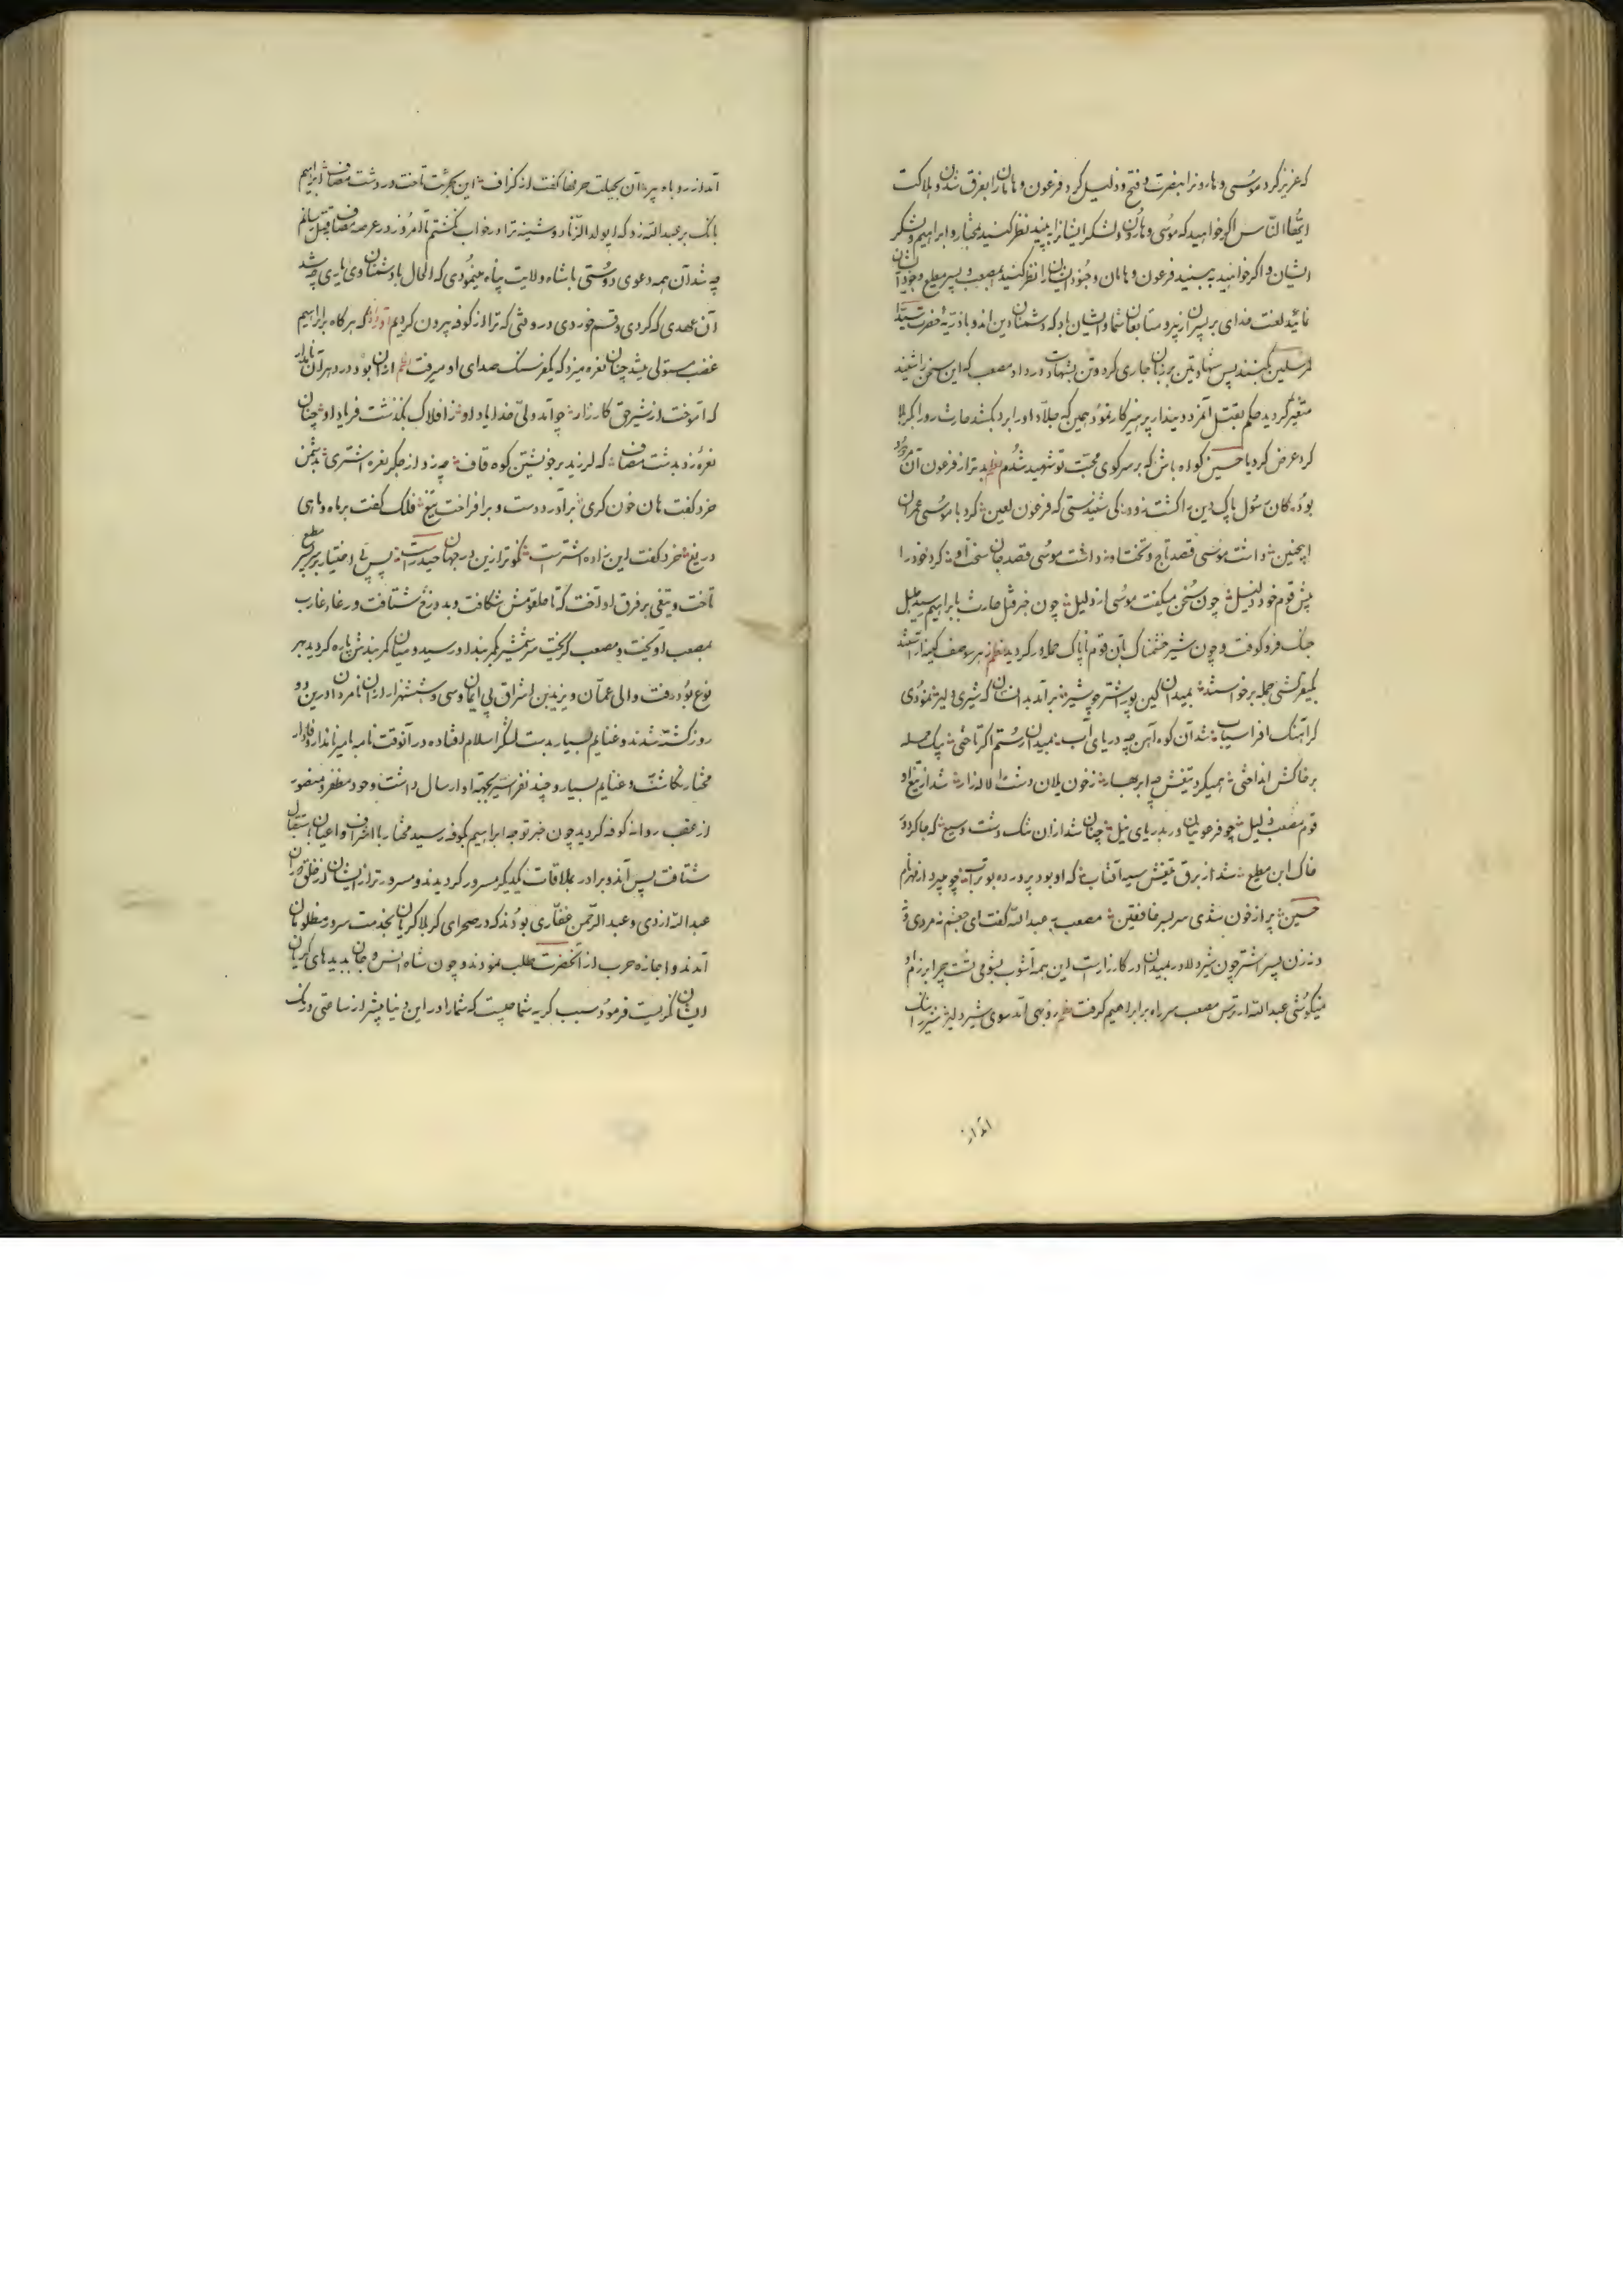 که عزیز کرد موسی و هارونرا بنصرت و فتح و ذلیل کرد فرعون و هامانرا بغرق شدن و هلاکت
ایها الناس اگر خواهید که موسی و هارون و لشکر ایشانرا ببینید نظر کنید بمختار و ابراهیم و لشکر
ایشان و اگر خواهید ببینید فرعون و هامان و جنود ایشانرا نظر کنید بمصعب و پسر مطیع و جنود ایشان
لعنت خدای بر پسران زبیر و متابعان شما و ایشان باد که دشمنان دین اند و با ذریهٔ حضرت سید
المرسلین بکینند پس شهادتین بر زبان جاری کرد و تن بشهادت در داد مصعب که این سخن را شنید
متغیر گردید حکم بقتل آنمرد دیندار پرهیزکار نمود همین که جلاد او را برد بکشد حارث رو را بکربلا
کرد عرض کرد یا حسین گواه باش که بر سر کوی محبت تو شهید شدم بد تر از فرعون آن مردود
بود کان رسول پاک دین را کشت زود کی شنیدستی که فرعون لعین کرد با موسی عمران
اینچنین داشت موسی قصد تاج و تخت او نداشت موسی قصد جان سخت او کرد خود را
پیش قوم خود ذلیل چون سخن میگفت موسی از دلیل چون خبر قتل حارث بابراهیم رسید طبل
جنگ فرو کوفت و چون شیر خشمناک بآن قوم ناپاک حمله ور گردید نظم ز هر سو صف کینه آراستند
بکینه کشی جمله برخواستند بمیدان کین پور اشتر چو شیر برآمد بدانسان که شیری دلیر نمودی
گر آهنگ افراسیاب شد آن کوه آهن چه دریای آب بمیدان رستم اگر تاختی بیک حمله
بر خاکش انداختی همیکرد تیغش چه ابر بهار ز خون یلان دشت را لاله زار شد از تیغ او
قوم مصعب ذلیل چو فرعونیان در بدریای نیل چنان شد از آن تنگ دشت وسیع که جا کرد در
خاک ابن مطیع شد از برق تیغش سیه آفتاب که او بود پرورده بوتراب چو میبرد از قهر نام
حسین پر از خون شدی سر بسر خافقین مصعب بعبدالله گفت ای جیغم نه مردی و
نه زن پسر اشتر چون شیر دلاور بمیدان در کارزارست این همه آشوب بشومی تست چرا برزم او
نمیکوشی عبدالله از ترس مصعب سر راه بر ابراهیم گرفت نظم روبهی آمد سوی شیر دلیر
آمد از
آمد از روباه پیر آن بحیلت حرفها گفت از گزاف این بجرئت تاخت در دشت مصاف ابراهیم
بانک بر عبدالله زد که ای ولد الزنا دوشینه ترا در خواب نکشتم تا امروز در عرصه مصاف بقتل رسانم
چه شد آن همه دعوی دوستی با شاه ولایت پناه مینمودی که الحال با دشمنان وی یاری چه شد
آن عهدی که کردی و قسم خوردی در وقتی که ترا از کوفه بیرون کردیم که هر گاه بر ابراهیم
غضب مستولی میشد چنان نعره میزد که یکفرسنک صدای او میرفت نظم از آن بود در دهر آن نامدار
که آموخت از شیر حق کارزار چو آمد ولی خدا یاد او ز افلاک بگذشت فریاد او چنان
نعره زد بدشت مصاف که لرزید بر خویشتن کوه قاف چه زد از جگر نعره اشتری بدشمن
خرد گفت هان خون گری برآورد دست و برافراخت تیغ فلک گفت بر ماه و ماهی
دریغ خرد گفت این زاده اشترست نکوتر ازین در جهان حیدرست پس بی اختیار بر سر پسر مطیع
تاخت و تیغی بر فرق او آخت که تا حلقومش شکافت و بدوزخ شتافت
بمصعب آویخت و مصعب گریخت سر شمشیر بکمر بند او رسید و میان کمر بندش پاره گردید بهر
نوع بود رفت و والی عمان و یزید بن اشراق بی ایمان و سی و شش هزار از آن نامردان در این دو
روز کشته شدند و غنایم بسیار بدست لشکر اسلام افتاده در آنوقت نامه بامیر نامدار و وفادار
مختار نگاشت و غنایم بسیار و چند نفر اسیر بجهة او ارسال داشت و خود مظفر و منصور
از عقب روانه کوفه گردید چون خبر توجه ابراهیم بکوفه رسید مختار با اشراف و اعیان باستقبال
شتافت پس آندو برادر بملاقات یکدیگر مسرور گردیدند و مسرورتر از ایشان از خلق جهان
عبدالله ازدی و عبدالرحمن غفاری بودند که در صحرای کربلا گریان بخدمت سرور مظلومان
آمدند و اجازه حرب از آنحضرت طلب نمودند و چون شاه انس و جان بدیدهای گریان
ایشان نگریست فرمود سبب گریه شما چیست که شما را در این دنیا بیشتر از ساعتی درنگ